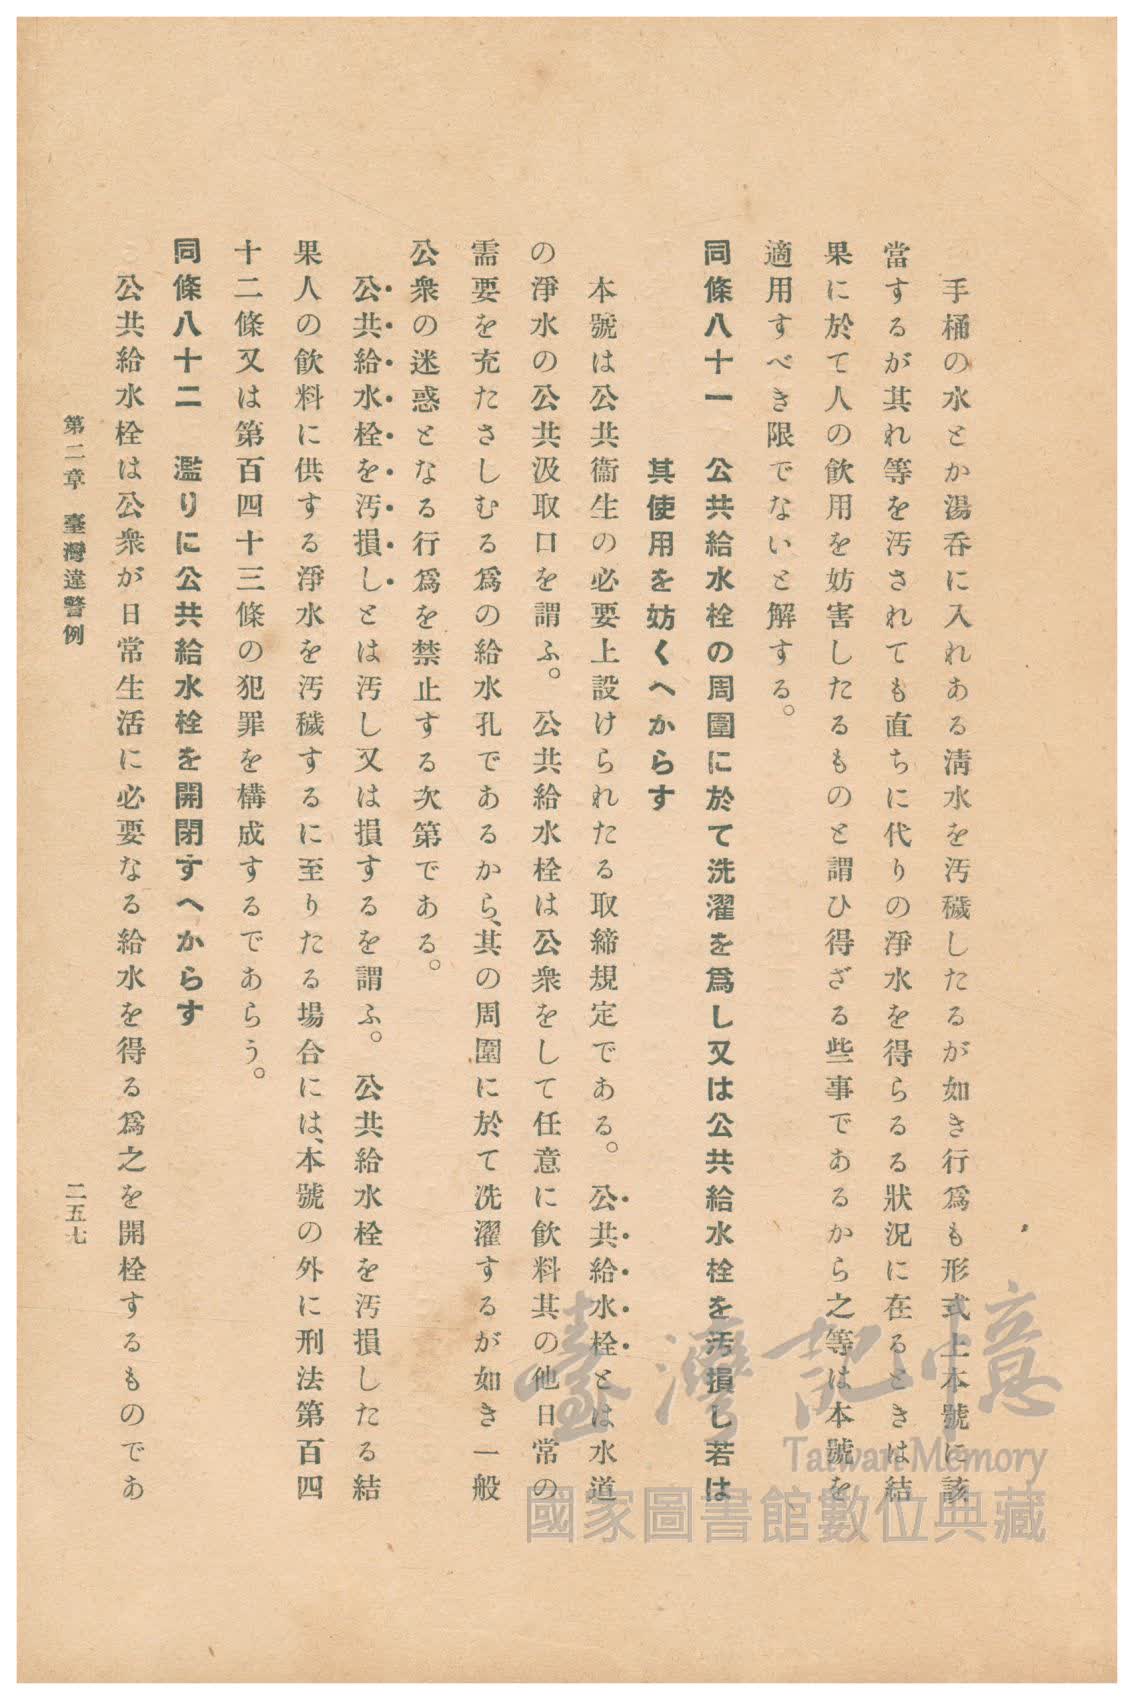 手桶の水とか湯呑に入れある淸水を汚穢したるが如き行爲も形式上本號に該
當するが其れ等を汚されても直ちに代りの淨水を得らるる狀況に在るときは結
果に於て人の飮用を妨害したるものと謂ひ得ざる些事であるから之等は本號を
適用すべき限でないと解する。
同條八十一　公共給水栓の周圍に於て洗濯を爲し又は公共給水栓を汚損し若は
其使用を妨くへからす
本號は公共衞生の必要上設けられたる取締規定である。公共給水栓とは水道
の淨水の公共汲取口を謂ふ。公共給水栓は公衆をして任意に飮料其の他日常の
需要を充たさしむる爲の給水孔であるから、其の周圍に於て洗濯するが如き一般
公衆の迷惑となる行爲を禁止する次第である。
公共給水栓を汚損しとは汚し又は損するを謂ふ。公共給水栓を汚損したる結
果人の飮料に供する淨水を汚穢するに至りたる場合には、本號の外に刑法第百四
十二條又は第百四十三條の犯罪を構成するであらう。
同條八十二　濫りに公共給水栓を開閉すへからす
公共給水栓は公衆が日常生活に必要なる給水を得る爲之を開栓するものであ
第二章　臺灣違警例　二五七
臺灣記憶
Taiwan Memory
國家圖書館數位典藏